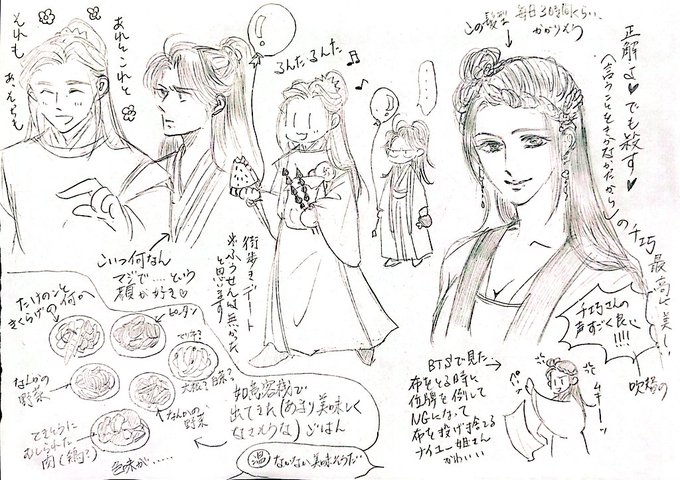 あれとこれと
それも
あちらも
るんたるんた♫♪
……
この髪型 毎日3時間くらい…
かかりそう
正解よ♥でも殺す♥
(言うことをきかなかったから)の
最高に美しい
声すごく良い
!!!!
吹替の
こいつ何なん
マジで……という
顔が好き♡
街歩きデート
※ふうせんは無かった
と思います
たけのこと
きくらげの何か
ピータン
なんかの
野菜
大根?白菜?
なんかの
野菜
てきとうに
むしられた
肉(鶏?)
色味が……
出てきた(あまり美味しく
なさそうな)ごはん
温
BTSで見た、
布をとる時に
位牌を倒して
NGになって
布を投げ捨てる
ナイユー姐さん
かわいい
ムキーッ